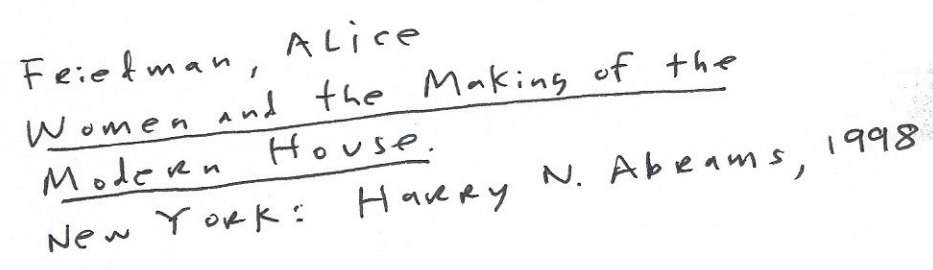 Friedman, Alice
Women and the Making of the
Modern House.
New York: Harry N. Abrams, 1998